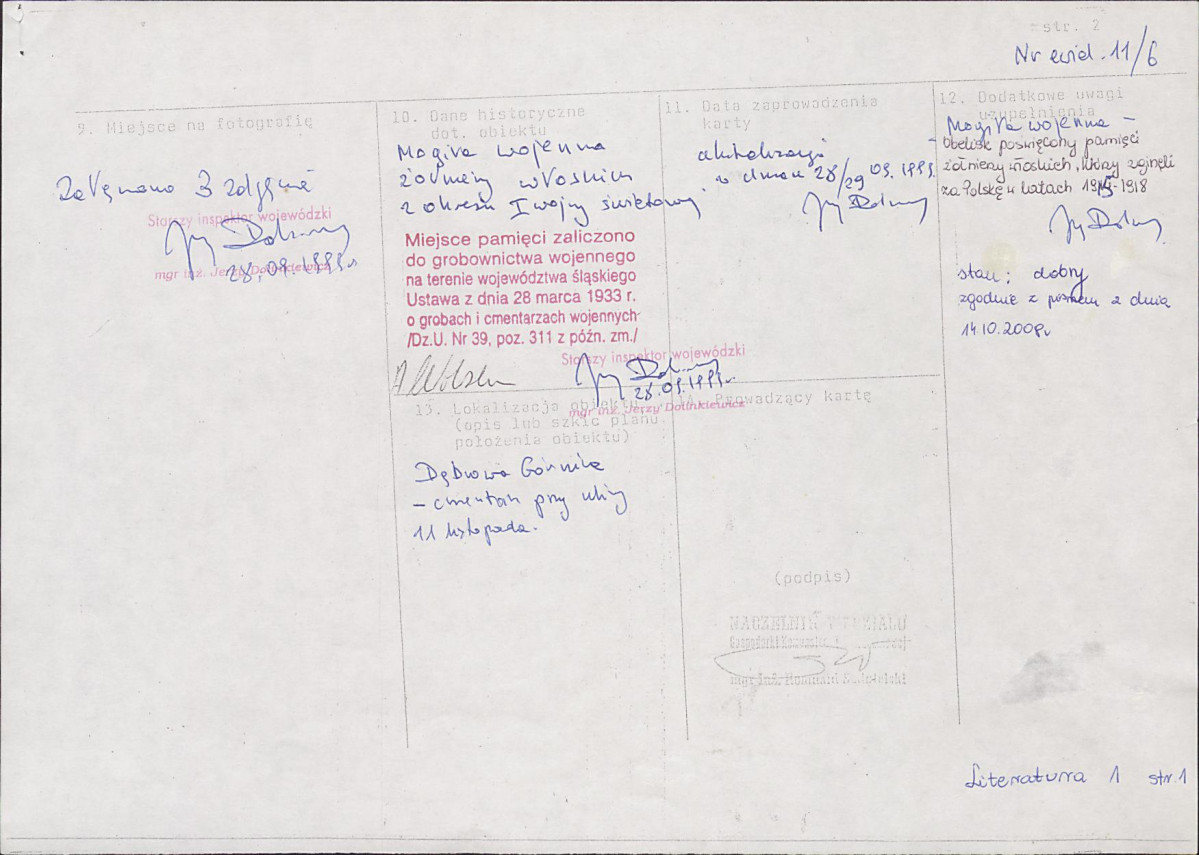 str. 2
Nr ewid. 11/6
9. Miejsce na fotografię
Załączono 3 zdjęcia
Starszy inspektor wojewódzki
mgr inż. Jerzy Dolinkiewicz
28.09.1999r
10. Dane historyczne
dot. obiektu
Mogiła wojenna
żołnierzy włoskich
z okresu I wojny światowej
Miejsce pamięci zaliczono
do grobownictwa wojennego
na terenie województwa śląskiego
Ustawa z dnia 28 marca 1933 r.
o grobach i cmentarzach wojennych
/Dz.U. Nr 39, poz. 311 z późn. zm./
Starszy inspektor wojewódzki
28.09.1999r.
mgr inż. Jerzy Dolinkiewicz
11. Data zaprowadzenia
karty
aktualizacja
w dniach 28/29 09.1999.
12. Dodatkowe uwagi
uzupełnienia
Mogiła wojenna –
- obelisk poświęcony pamięci
żołnierzy włoskich, którzy zginęli
za Polskę w latach 1915-1918
stan: dobry
zgodnie z pismem z dnia
14.10.2009r
13. Lokalizacja obiektu
(opis lub szkic planu
położenia obiektu)
Dąbrowa Górnicza
– cmentarz przy ulicy
11 listopada.
14. Prowadzący kartę
(podpis)
NACZELNIK WYDZIAŁU
mgr inż.
Literatura 1 str. 1